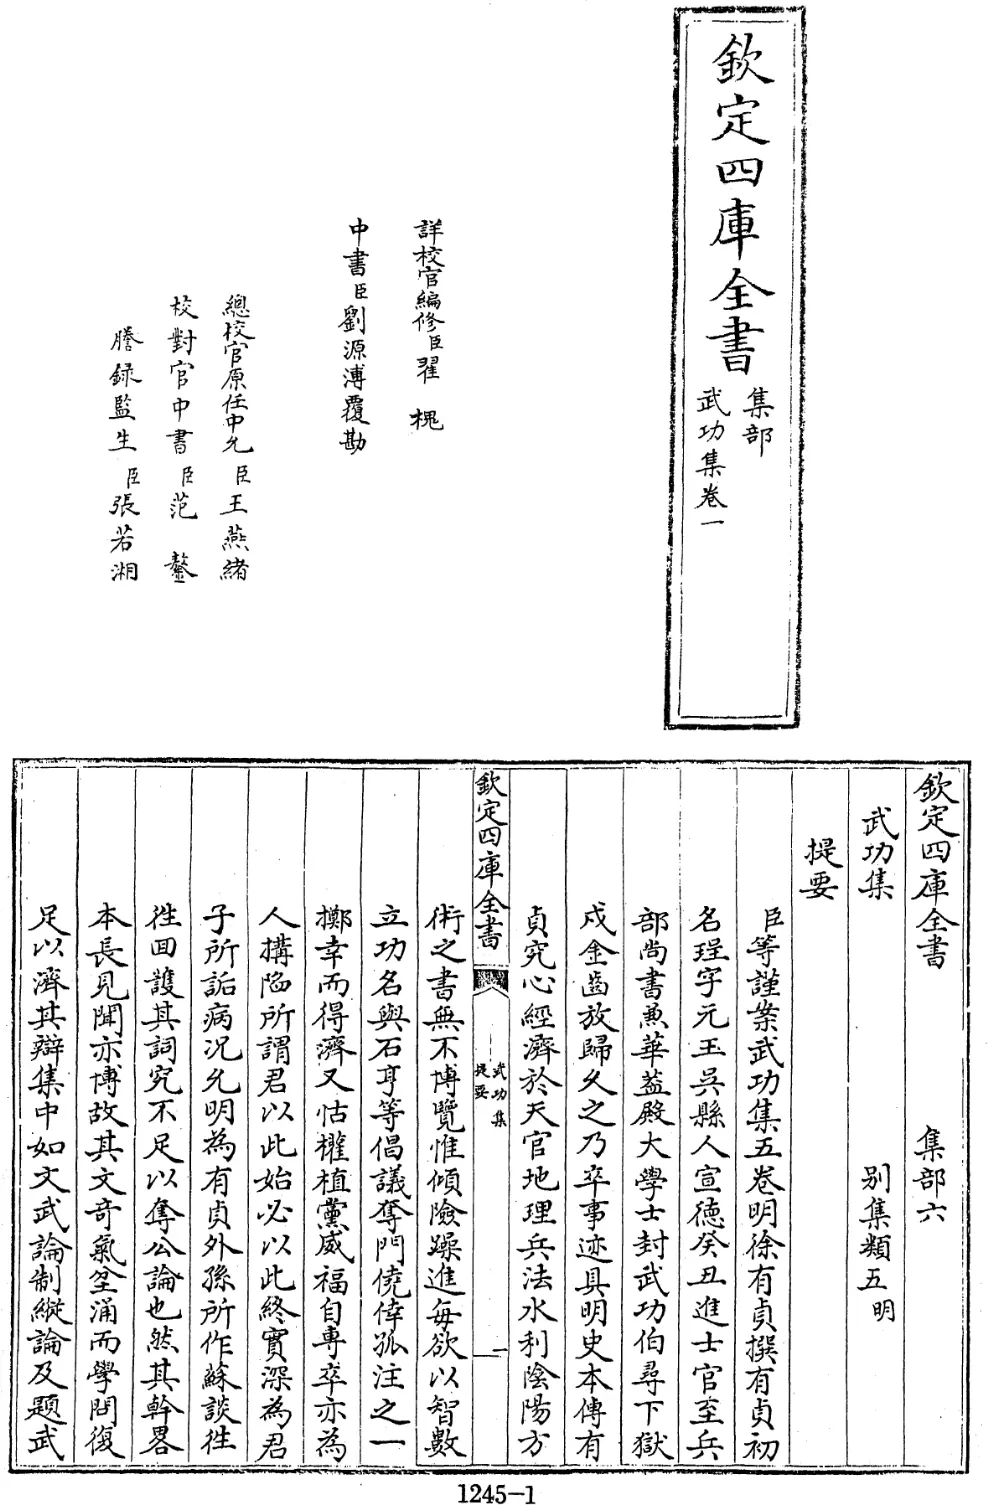 欽定四庫全書
集部
武功集卷一
詳校官編修臣翟槐
中書臣劉源溥覆勘
總校官原任中允臣王燕緒
校對官中書臣范鏊
謄録監生臣張若湘
欽定四庫全書　集部六
武功集　別集類五明
提要
臣等謹案武功集五卷明徐有貞撰有貞初
名珵字元玉吳縣人宣徳癸丑進士官至兵
部尚書兼華葢殿大學士封武功伯尋下獄
戍金齒放歸久之乃卒事迹具明史本傳有
貞究心經濟於天官地理兵法水利陰陽方
欽定四庫全書
武功集
提要
一
術之書無不博覽惟傾險躁進每欲以智數
立功名與石亨等倡議奪門僥倖孤注之一
擲幸而得濟又怙權植黨威福自專卒亦為
人搆陷所謂君以此始必以此終實深為君
子所詬病况允明為有貞外孫所作蘇談徃
徃回護其詞究不足以奪公論也然其幹畧
本長見聞亦博故其文竒氣坌涌而學問復
足以濟其辯集中如文武論制縱論及題武
1245-1